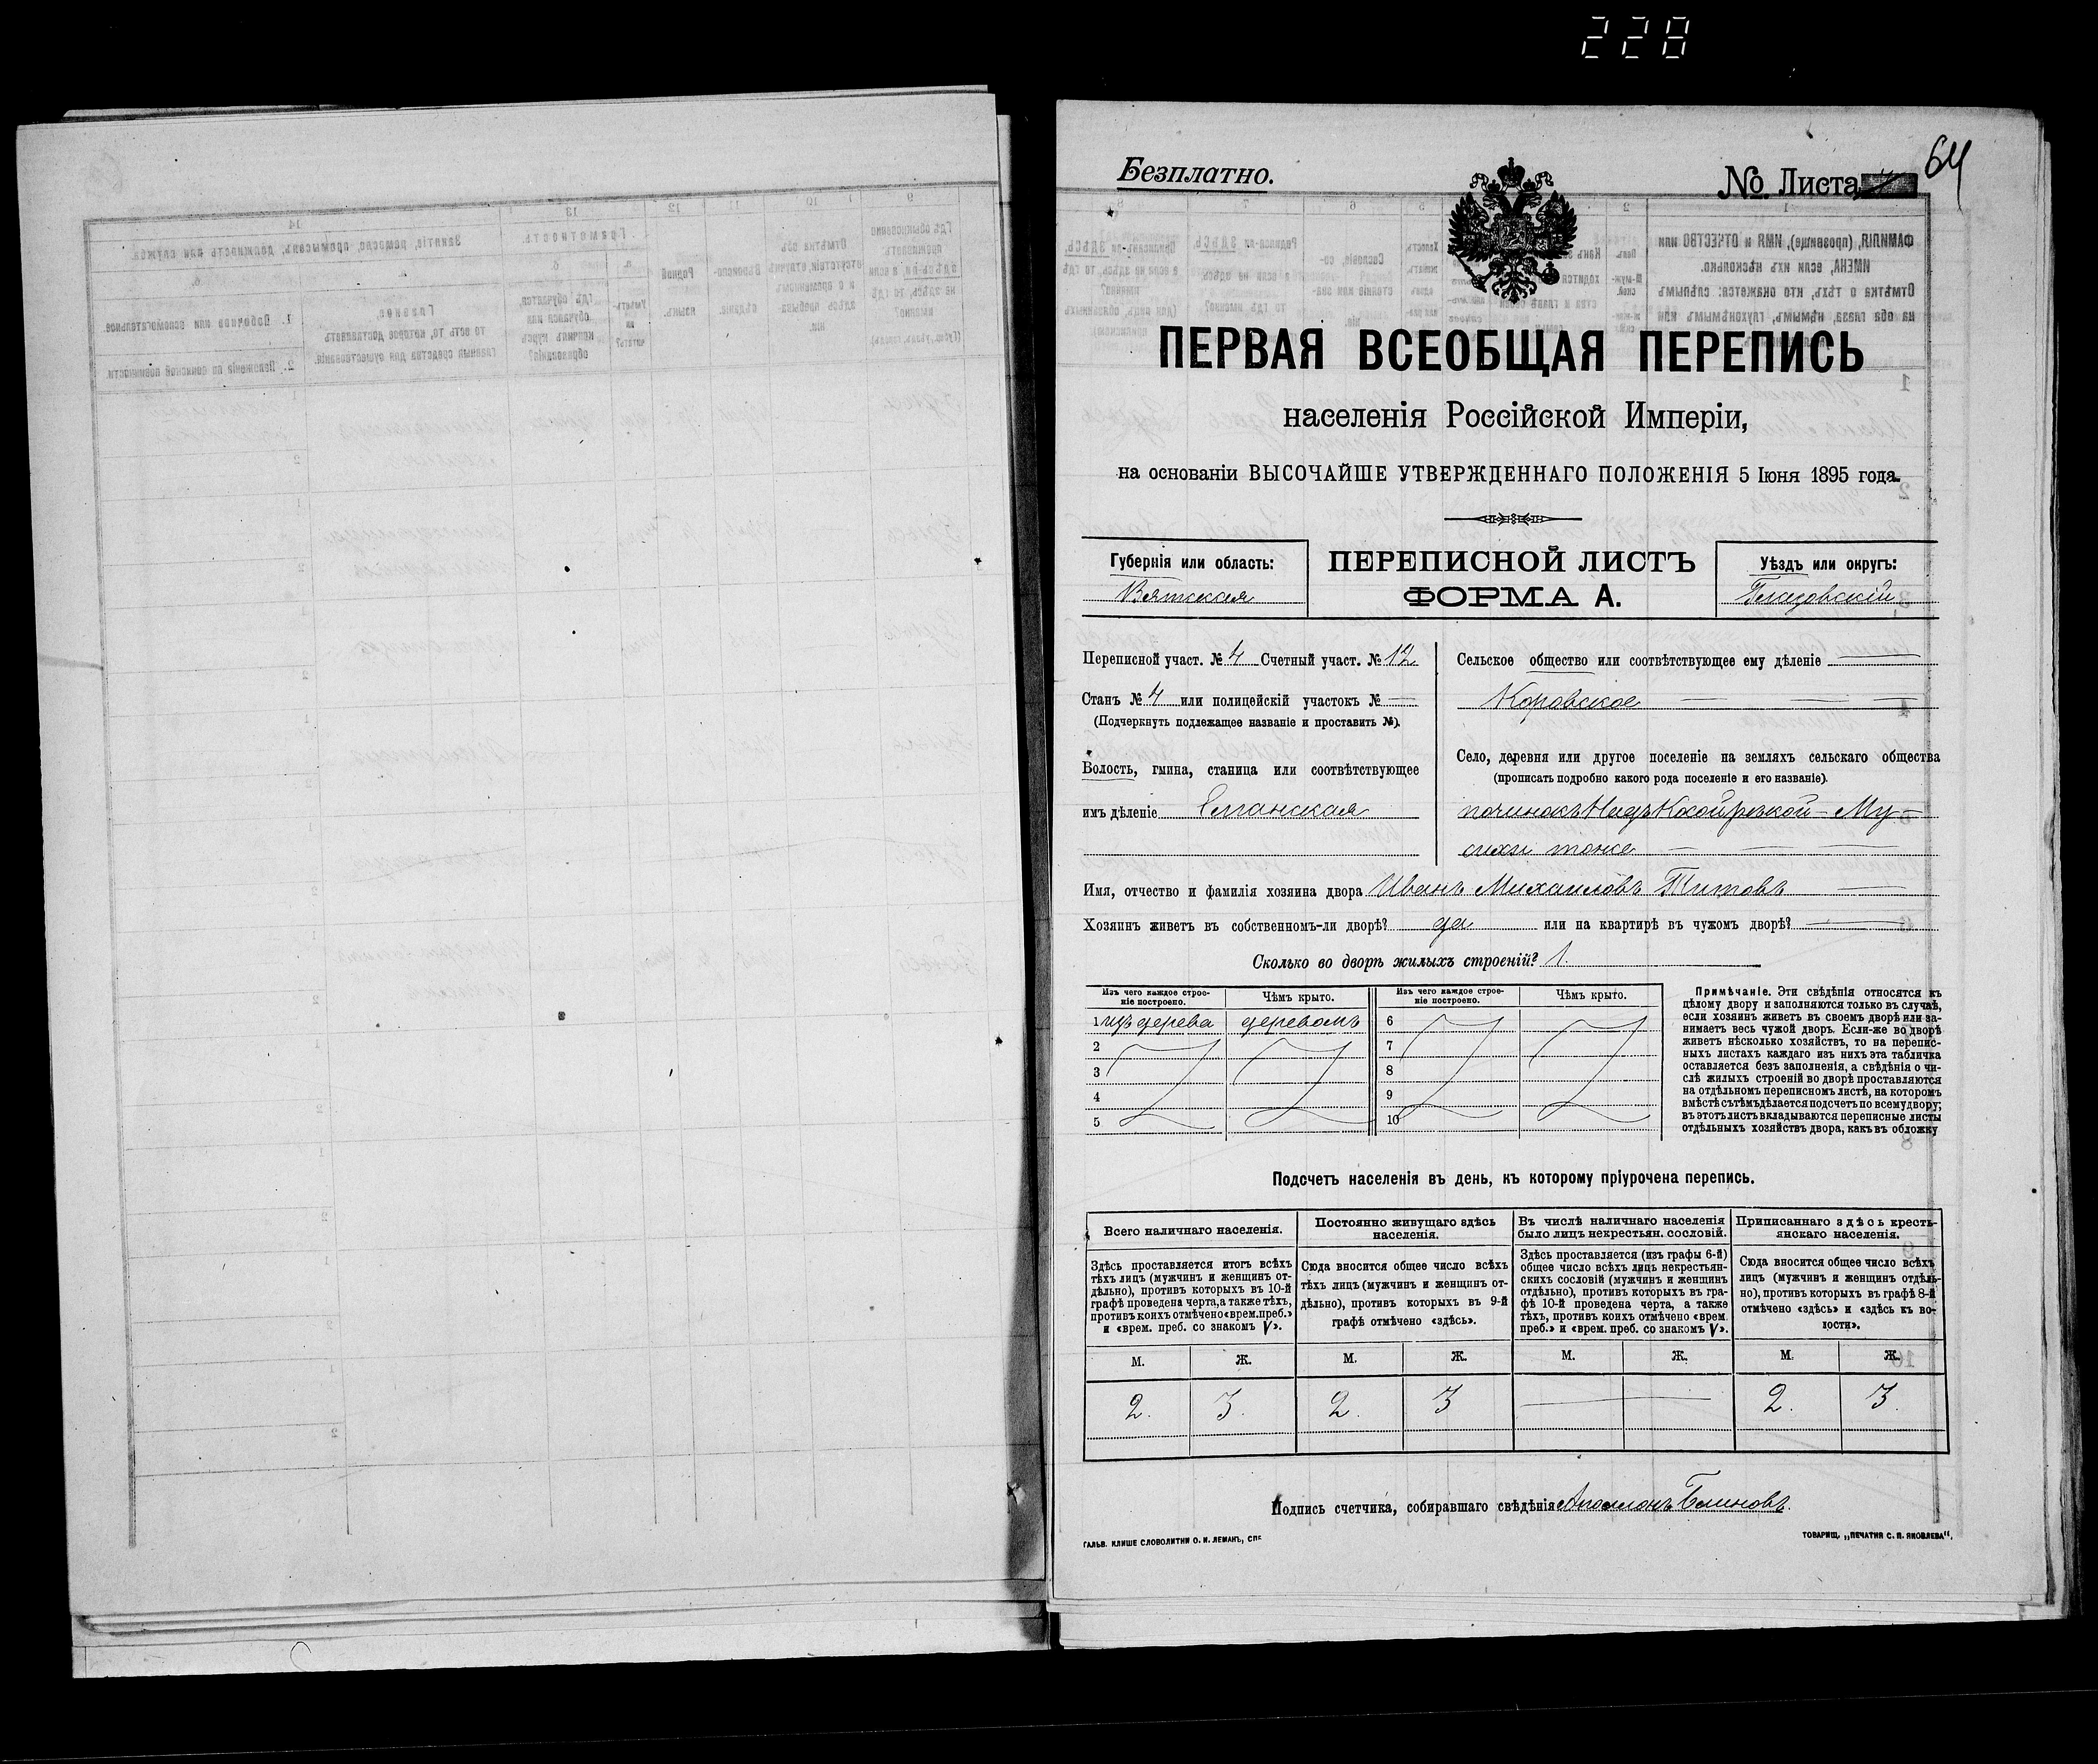 228
64
Безплатно.
№ Листа
ПЕРВАЯ ВСЕОБЩАЯ ПЕРЕПИСЬ
населенія Россійской Имперіи,
на основаніи ВЫСОЧАЙШЕ УТВЕРЖДЕННАГО ПОЛОЖЕНІЯ 5 Іюня 1895 года.
Губернія или область:
Вятская
ПЕРЕПИСНОЙ ЛИСТЪ
ФОРМА А.
Уѣздъ или округъ:
Глазовскій
Переписной участ. № 4 Счетный участ. № 12
Станъ № 4 или полицейскій участокъ № —
(Подчеркнуть подлежащее названіе и проставить №).
Волость, гмина, станица или соотвѣтствующее
имъ дѣленіе Еланская
Сельское общество или соотвѣтствующее ему дѣленіе —
Коровское — —
Село, деревня или другое поселеніе на земляхъ сельскаго общества
(прописать подробно какого рода поселеніе и его названіе).
починокъ Надъ Косой рѣкой — Му-
сихи тоже — — —
Имя, отчество и фамилія хозяина двора Иванъ Михаиловъ Титовъ —
Хозяинъ живетъ въ собственномъ-ли дворѣ? да или на квартирѣ въ чужомъ дворѣ? —
Сколько во дворѣ жилыхъ строеній? 1.
Изъ чего каждое строе-
ніе построено.
Чѣмъ крыто.
Изъ чего каждое строе-
ніе построено.
Чѣмъ крыто.
1 изъ дерева деревомъ 6
2 7
3 8
4 9
5 10
Примѣчаніе. Эти свѣдѣнія относятся къ
цѣлому двору и заполняются только въ случаѣ,
если хозяинъ живетъ въ своемъ дворѣ или за-
нимаетъ весь чужой дворъ. Если-же во дворѣ
живетъ нѣсколько хозяйствъ, то на перепис-
ныхъ листахъ каждаго изъ нихъ эта табличка
оставляется безъ заполненія, а свѣдѣнія о чи-
слѣ жилыхъ строеній во дворѣ проставляются
на отдѣльномъ переписномъ листѣ, на которомъ
вмѣстѣ съ тѣмъ дѣлается подсчетъ по всему двору;
въ этотъ листъ вкладываются переписные листы
отдѣльныхъ хозяйствъ двора, какъ въ обложку
Подсчетъ населенія въ день, къ которому пріурочена перепись.
Всего наличнаго населенія.
Здѣсь проставляется итогъ всѣхъ
тѣхъ лицъ (мужчинъ и женщинъ от-
дѣльно), противъ которыхъ въ 10-й
графѣ проведена черта, а также тѣхъ,
противъ коихъ отмѣчено «врем. преб.»
и «врем. преб. со знакомъ V».
Постоянно живущаго здѣсь
населенія.
Сюда вносится общее число всѣхъ
тѣхъ лицъ (мужчинъ и женщинъ от-
дѣльно), противъ которыхъ въ 9-й
графѣ отмѣчено «здѣсь».
Въ числѣ наличнаго населенія
было лицъ некрестьян. сословій.
Здѣсь проставляется (изъ графы 6-й)
общее число всѣхъ лицъ некрестьян-
скихъ сословій (мужчинъ и женщинъ
отдѣльно), противъ которыхъ въ гра-
фѣ 10-й проведена черта, а также
тѣхъ, противъ коихъ отмѣчено «врем.
преб.» и «врем. преб. со знакомъ V».
Приписаннаго здѣсь кресть-
янскаго населенія.
Сюда вносится общее число всѣхъ
лицъ (мужчинъ и женщинъ отдѣль-
но), противъ которыхъ въ графѣ 8-й
отмѣчено «здѣсь» и «здѣсь къ во-
лости».
М. Ж. М. Ж. М. Ж. М. Ж.
2. 3. 2. 3 — — 2. 3.
Подпись счетчика, собиравшаго свѣдѣнія Аполлонъ Блиновъ.
ГАЛЬВ. КЛИШЕ СЛОВОЛИТНИ О. И. ЛЕМАНЪ, СПБ
ТОВАРИЩ. „ПЕЧАТНЯ С. П. ЯКОВЛЕВА".